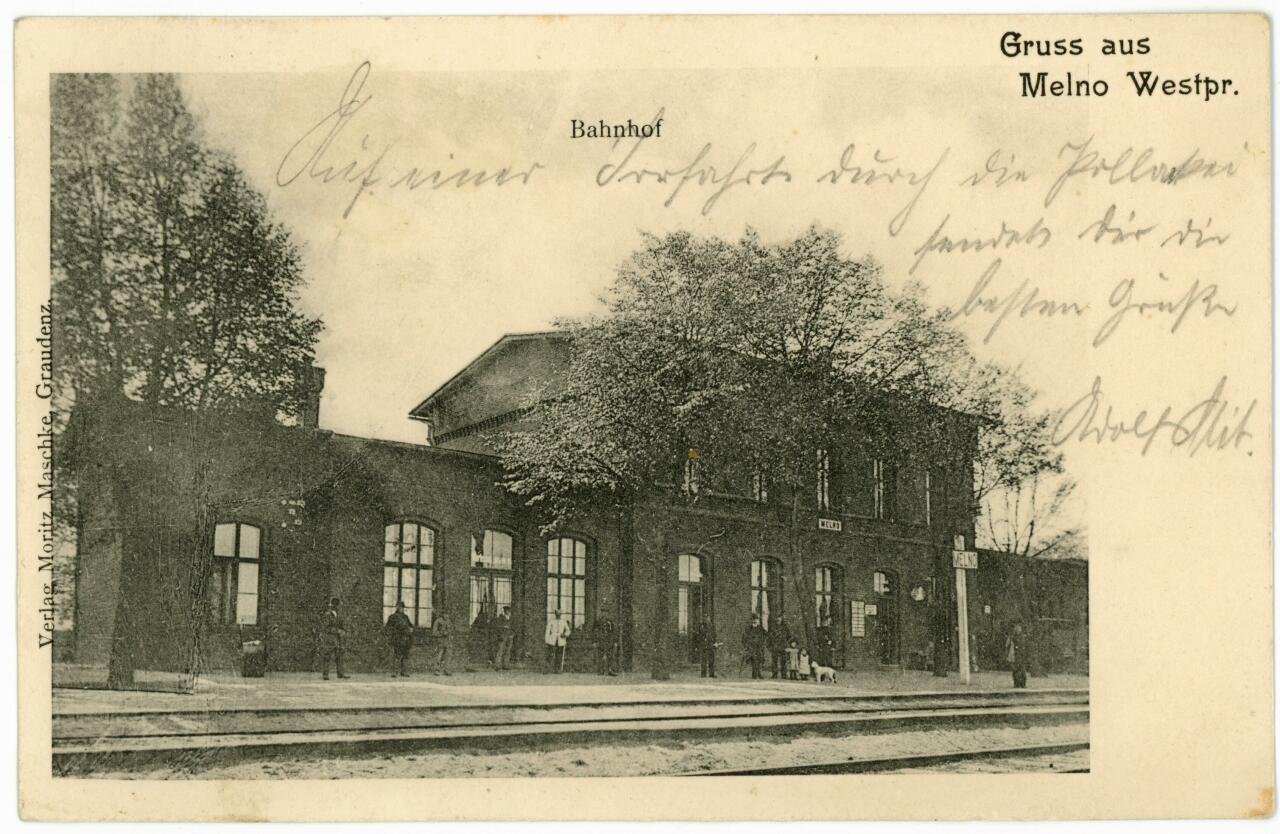 Gruss aus
Melno Westpr.
Bahnhof
Auf einer durch die Pollakei
sendet Dir die
besten Grüße
Adolf
MELNO
MELNO
Verlag Moritz Maschke, Graudenz.